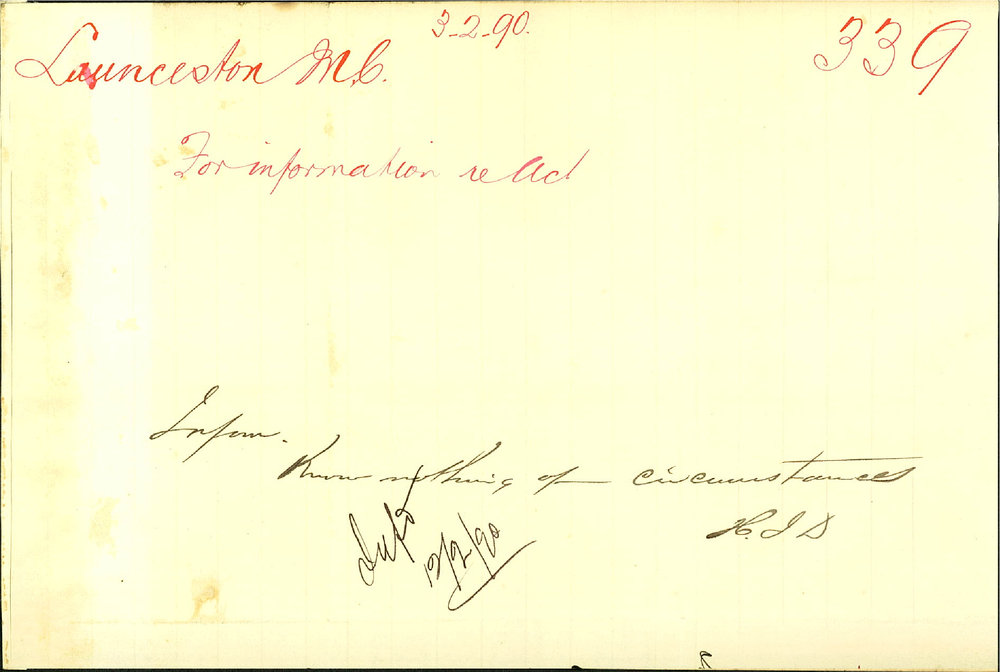 3-2-90.
Launceston M.C. 339
For information re Act
Inform.
Know nothing of circumstances
H.J.D
Infd
12/2/90